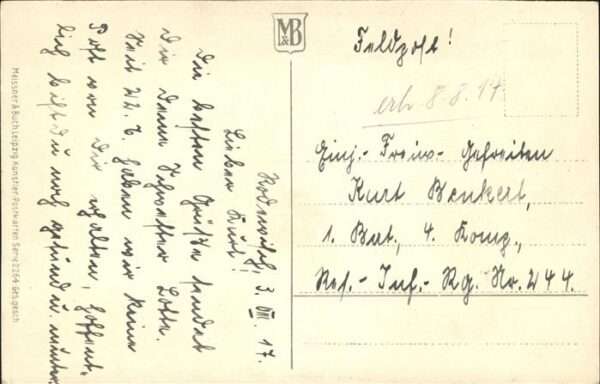 M&B
Feldpost!
erh. 8.8.17
Einj.-Freiw.-Gefreiten
Kurt Benkert,
1. Bat., 4. Komp.,
Res.-Inf.-Rg. Nr. 244.
Rodewisch, 3. VIII. 17.
Lieber Kurt!
Die besten Grüße sendet
Dir Deine Schwester Lotte.
Seit 22. 7. haben wir keine
Post von Dir erhalten, hoffent-
lich bist Du noch gesund u. munter.
Meissner & Buch Leipzig Künstler-Postkarten Serie 2264 Ges. gesch.